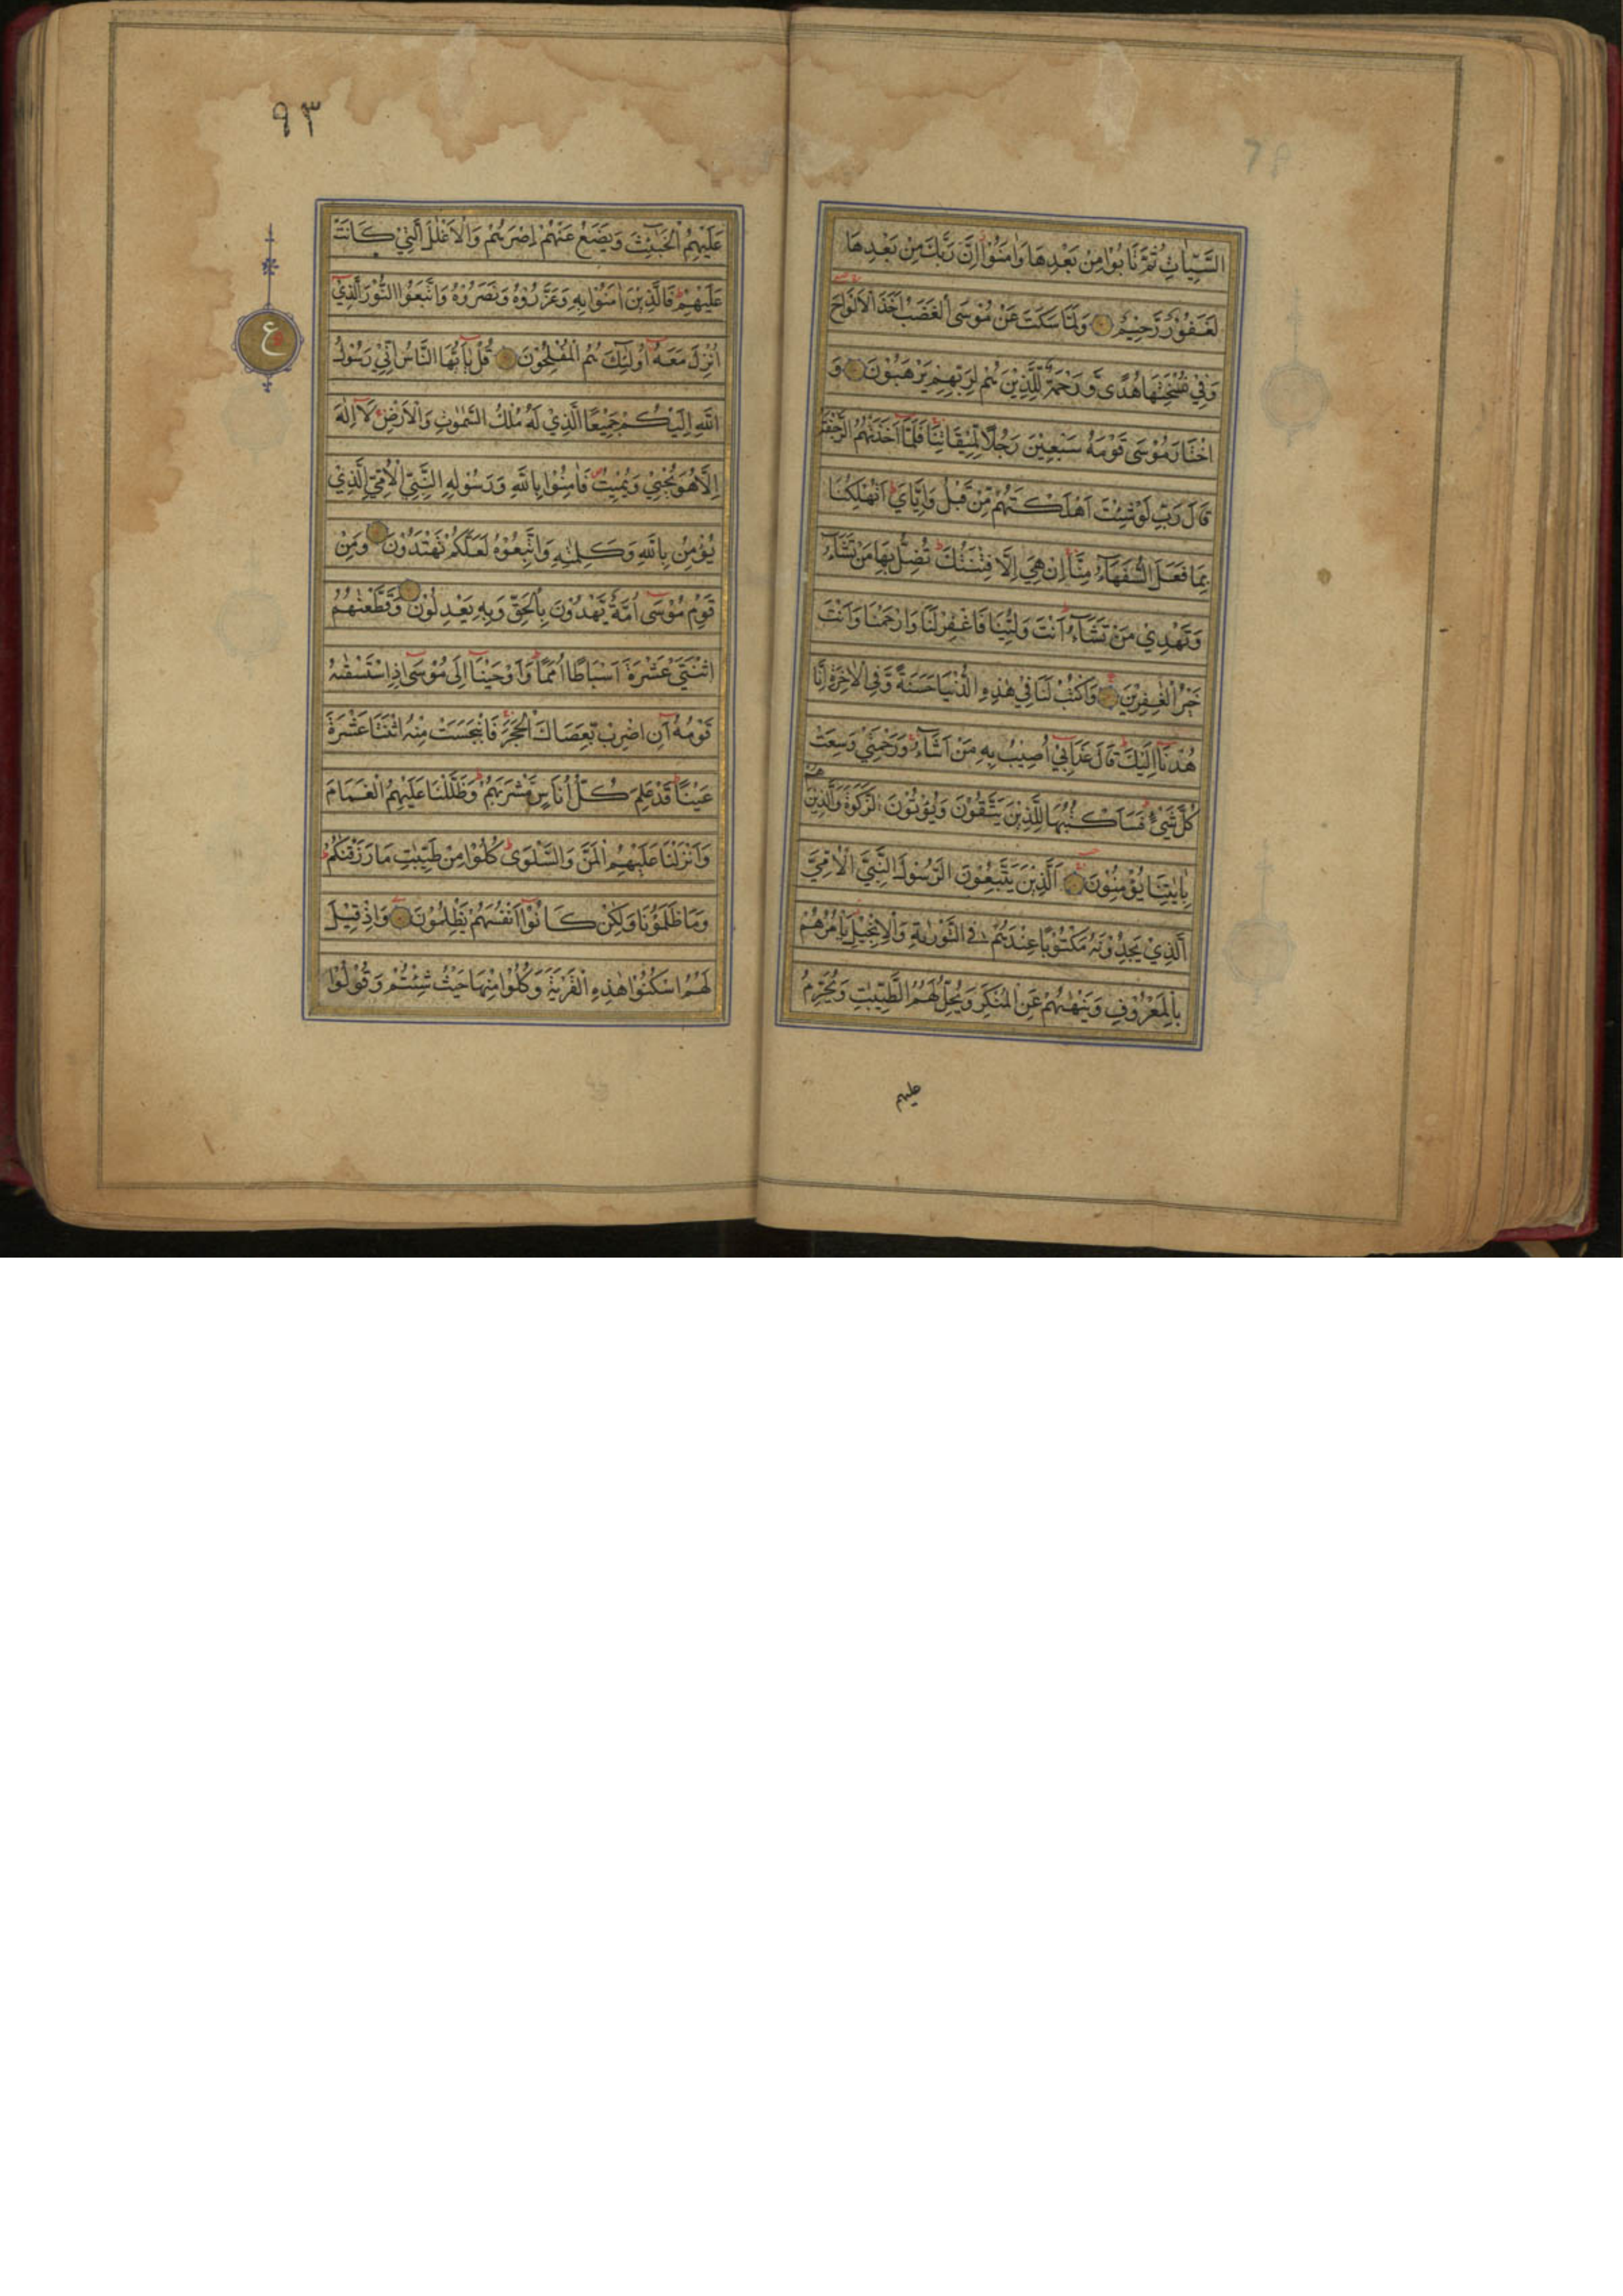 السَّيِّاٰتِ ثُمَّ تَابُوْا مِنْ بَعْدِهَا وَاٰمَنُوْا اِنَّ رَبَّكَ مِنْ بَعْدِهَا
لَغَفُوْرٌ رَّحِيْمٌ وَلَمَّا سَكَتَ عَنْ مُوْسَى الْغَضَبُ اَخَذَ الْاَلْوَاحَ
وَفِيْ نُسْخَتِهَا هُدًى وَّرَحْمَةٌ لِّلَّذِيْنَ هُمْ لِرَبِّهِمْ يَرْهَبُوْنَ وَ
اخْتَارَ مُوْسٰى قَوْمَهٗ سَبْعِيْنَ رَجُلًا لِّمِيْقَاتِنَا فَلَمَّآ اَخَذَتْهُمُ الرَّجْفَةُ
قَالَ رَبِّ لَوْ شِئْتَ اَهْلَكْتَهُمْ مِّنْ قَبْلُ وَاِيَّايَ اَتُهْلِكُنَا
بِمَا فَعَلَ السُّفَهَآءُ مِنَّا اِنْ هِيَ اِلَّا فِتْنَتُكَ تُضِلُّ بِهَا مَنْ تَشَآءُ
وَتَهْدِيْ مَنْ تَشَآءُ اَنْتَ وَلِيُّنَا فَاغْفِرْ لَنَا وَارْحَمْنَا وَاَنْتَ
خَيْرُ الْغٰفِرِيْنَ وَاكْتُبْ لَنَا فِيْ هٰذِهِ الدُّنْيَا حَسَنَةً وَّفِي الْاٰخِرَةِ اِنَّا
هُدْنَآ اِلَيْكَ قَالَ عَذَابِيْٓ اُصِيْبُ بِهٖ مَنْ اَشَآءُ وَرَحْمَتِيْ وَسِعَتْ
كُلَّ شَيْءٍ فَسَاَكْتُبُهَا لِلَّذِيْنَ يَتَّقُوْنَ وَيُؤْتُوْنَ الزَّكٰوةَ وَالَّذِيْنَ هُمْ
بِاٰيٰتِنَا يُؤْمِنُوْنَ اَلَّذِيْنَ يَتَّبِعُوْنَ الرَّسُوْلَ النَّبِيَّ الْاُمِّيَّ
الَّذِيْ يَجِدُوْنَهٗ مَكْتُوْبًا عِنْدَهُمْ فِي التَّوْرٰىةِ وَالْاِنْجِيْلِ يَاْمُرُهُمْ
بِالْمَعْرُوْفِ وَيَنْهٰىهُمْ عَنِ الْمُنْكَرِ وَيُحِلُّ لَهُمُ الطَّيِّبٰتِ وَيُحَرِّمُ
عليهم
٩٣
عَلَيْهِمُ الْخَبٰٓئِثَ وَيَضَعُ عَنْهُمْ اِصْرَهُمْ وَالْاَغْلٰلَ الَّتِيْ كَانَتْ
عَلَيْهِمْ فَالَّذِيْنَ اٰمَنُوْا بِهٖ وَعَزَّرُوْهُ وَنَصَرُوْهُ وَاتَّبَعُوا النُّوْرَ الَّذِيْٓ
ع
اُنْزِلَ مَعَهٗٓ اُولٰٓئِكَ هُمُ الْمُفْلِحُوْنَ قُلْ يٰٓاَيُّهَا النَّاسُ اِنِّيْ رَسُوْلُ
اللّٰهِ اِلَيْكُمْ جَمِيْعًا الَّذِيْ لَهٗ مُلْكُ السَّمٰوٰتِ وَالْاَرْضِ لَآ اِلٰهَ
اِلَّا هُوَ يُحْيِيْ وَيُمِيْتُ فَاٰمِنُوْا بِاللّٰهِ وَرَسُوْلِهِ النَّبِيِّ الْاُمِّيِّ الَّذِيْ
يُؤْمِنُ بِاللّٰهِ وَكَلِمٰتِهٖ وَاتَّبِعُوْهُ لَعَلَّكُمْ تَهْتَدُوْنَ وَمِنْ
قَوْمِ مُوْسٰٓى اُمَّةٌ يَّهْدُوْنَ بِالْحَقِّ وَبِهٖ يَعْدِلُوْنَ وَقَطَّعْنٰهُمُ
اثْنَتَيْ عَشْرَةَ اَسْبَاطًا اُمَمًا وَاَوْحَيْنَآ اِلٰى مُوْسٰٓى اِذِ اسْتَسْقٰىهُ
قَوْمُهٗٓ اَنِ اضْرِبْ بِّعَصَاكَ الْحَجَرَ فَانْبَجَسَتْ مِنْهُ اثْنَتَا عَشْرَةَ
عَيْنًا قَدْ عَلِمَ كُلُّ اُنَاسٍ مَّشْرَبَهُمْ وَظَلَّلْنَا عَلَيْهِمُ الْغَمَامَ
وَاَنْزَلْنَا عَلَيْهِمُ الْمَنَّ وَالسَّلْوٰى كُلُوْا مِنْ طَيِّبٰتِ مَا رَزَقْنٰكُمْ
وَمَا ظَلَمُوْنَا وَلٰكِنْ كَانُوْٓا اَنْفُسَهُمْ يَظْلِمُوْنَ وَاِذْ قِيْلَ
لَهُمُ اسْكُنُوْا هٰذِهِ الْقَرْيَةَ وَكُلُوْا مِنْهَا حَيْثُ شِئْتُمْ وَقُوْلُوْا